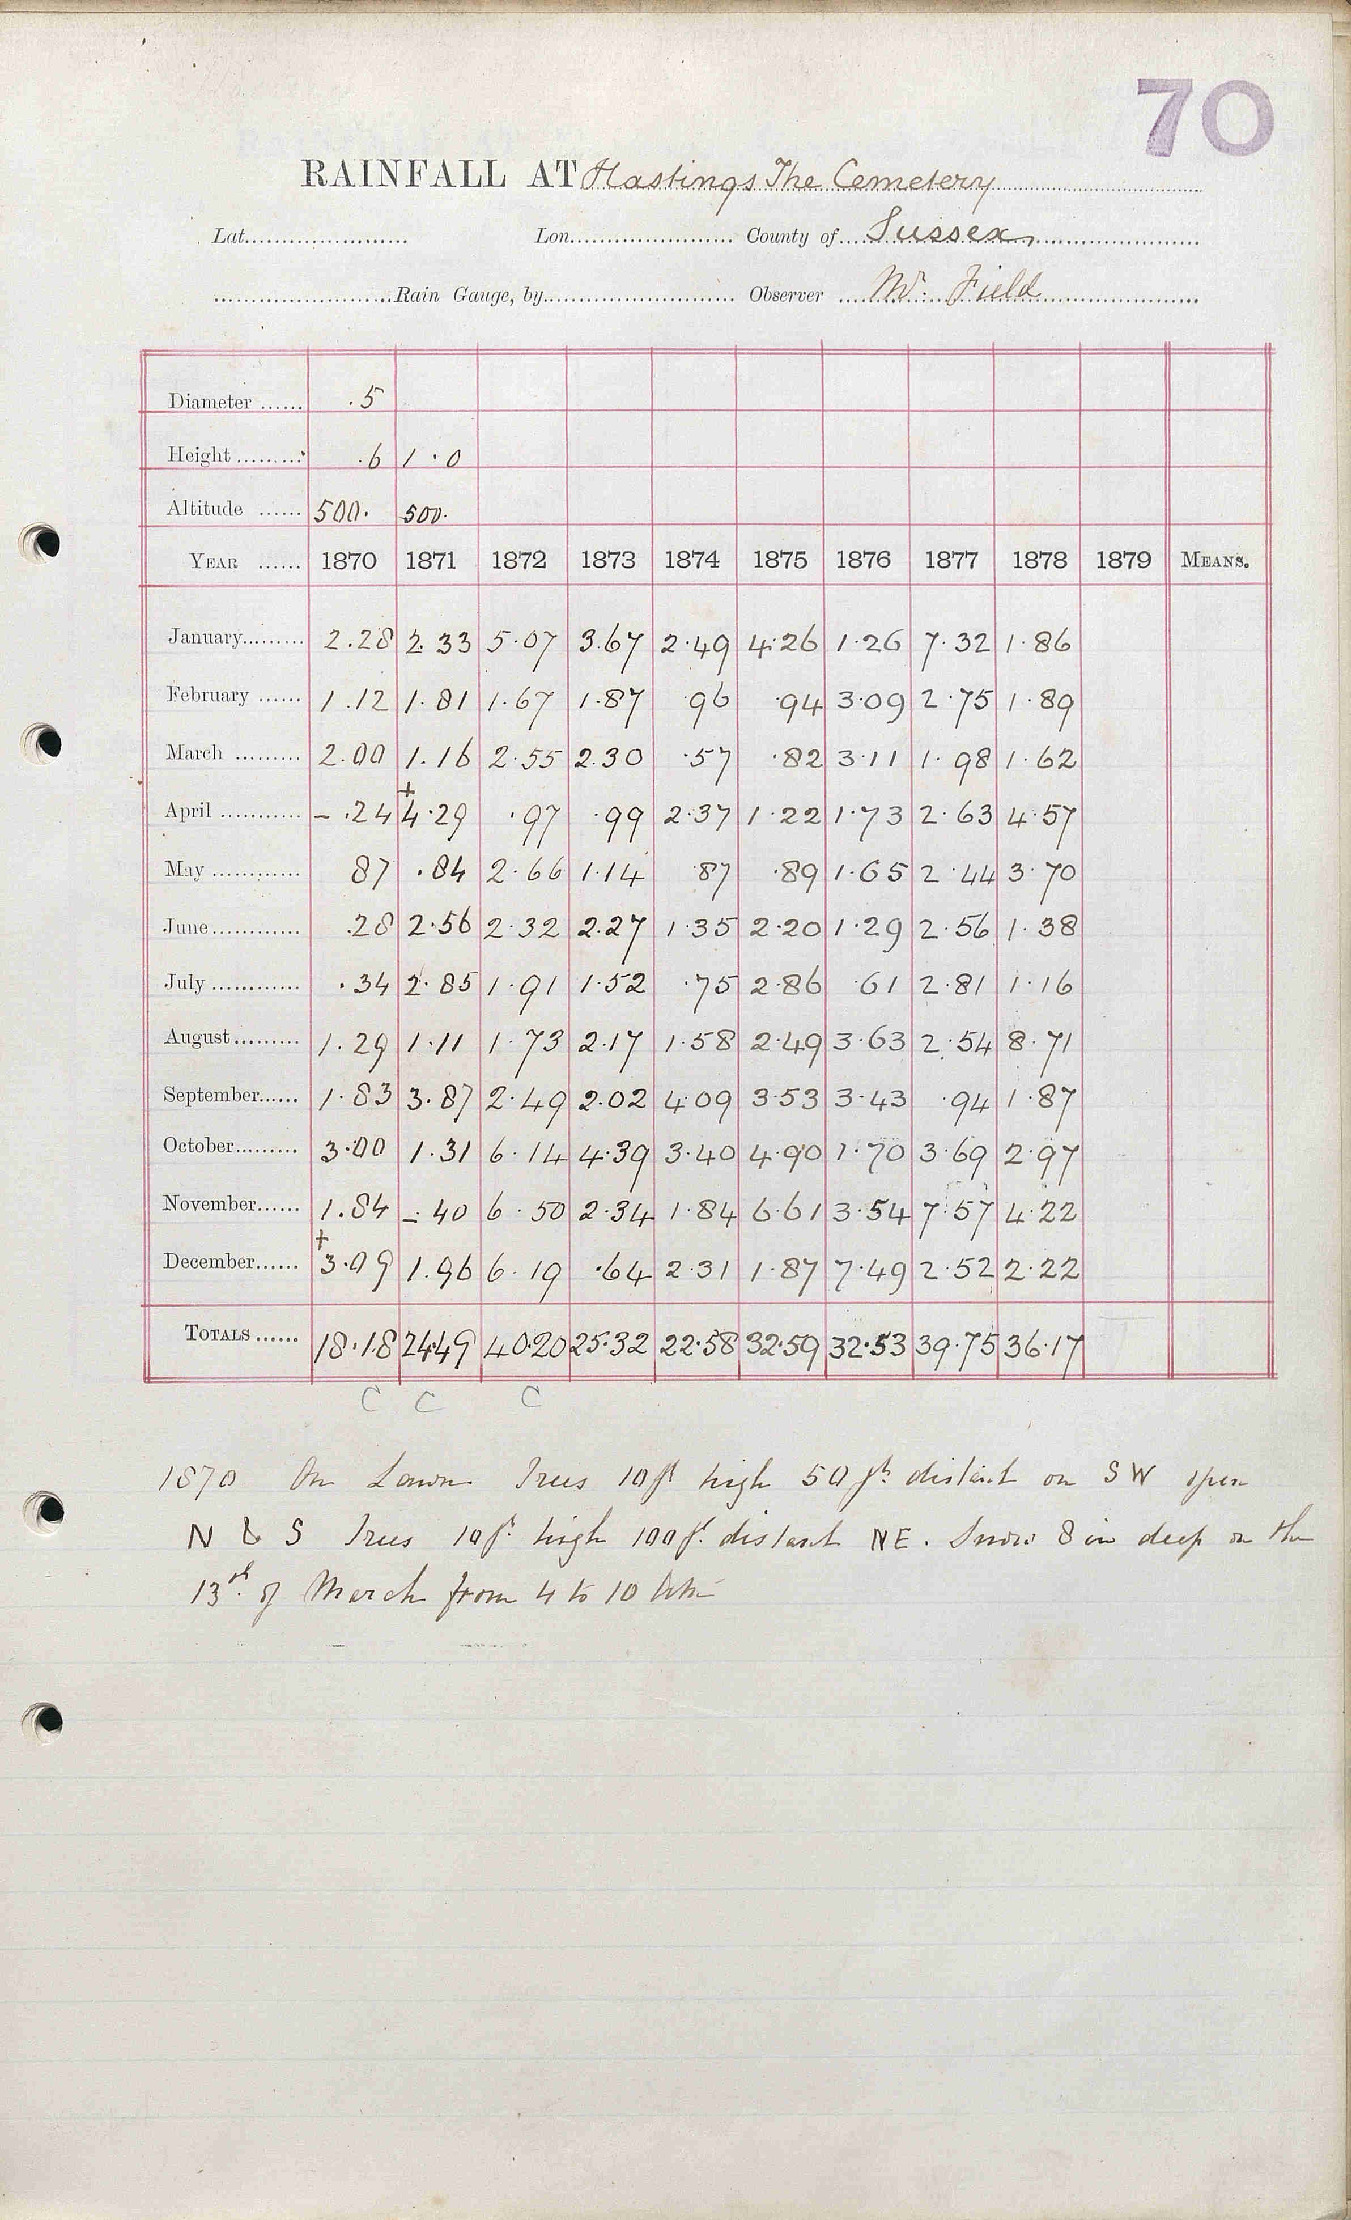 70
RAINFALL AT Hastings The Cemetery
Lat. Lon. County of Sussex
Rain Gauge, by Observer Mr. Field
Diameter .5
Height .6 1.0
Altitude 500. 500.
YEAR 1870 1871 1872 1873 1874 1875 1876 1877 1878 1879 MEANS.
January 2.28 2.33 5.07 3.67 2.49 4.26 1.26 7.32 1.86
February 1.12 1.81 1.67 1.87 .96 .94 3.09 2.75 1.89
March 2.00 1.16 2.55 2.30 .57 .82 3.11 1.98 1.62
April - .24 + 4.29 .97 .99 2.37 1.22 1.73 2.63 4.57
May 87 .84 2.66 1.14 .87 .89 1.65 2.44 3.70
June .28 2.56 2.32 2.27 1.35 2.20 1.29 2.56 1.38
July .34 2.85 1.91 1.52 .75 2.86 .61 2.81 1.16
August 1.29 1.11 1.73 2.17 1.58 2.49 3.63 2.54 8.71
September 1.83 3.87 2.49 2.02 4.09 3.53 3.43 .94 1.87
October 3.00 1.31 6.14 4.39 3.40 4.90 1.70 3.69 2.97
November 1.84 - .40 6.50 2.34 1.84 6.61 3.54 7.57 4.22
December + 3.09 1.96 6.19 .64 2.31 1.87 7.49 2.52 2.22
TOTALS 18.18 24.49 40.20 25.32 22.58 32.59 32.53 39.75 36.17
C C C
1870 On Lawn Trees 10ft high 50ft distant on SW open
N & S Trees 10ft high 100ft distant NE. Snow 8 in deep on the
13th of March from 4 to 10